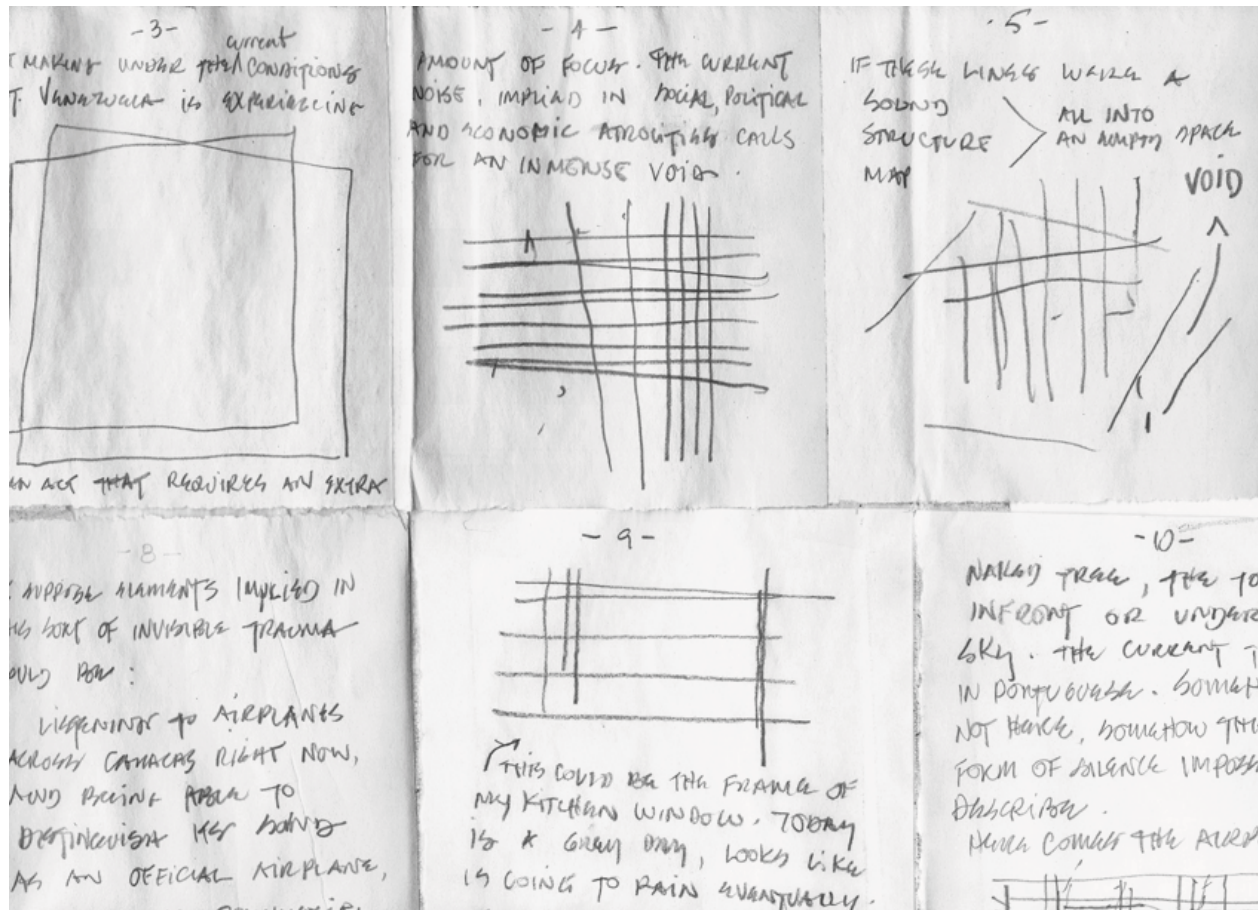 -3-
current
MAKING UNDER THE CONDITIONS
VENEZUELA IS EXPERIENCING
AN ACT THAT REQUIRES AN EXTRA
-4-
AMOUNT OF FOCUS. THE CURRENT
NOISE, IMPLIED IN SOCIAL, POLITICAL
AND ECONOMIC ATROCITIES CALLS
FOR AN INMENSE VOID.
-5-
IF THESE LINES WERE A
SOUND
STRUCTURE
MAP
ALL INTO
AN EMPTY SPACE
VOID
-8-
SUPPOSE ELEMENTS IMPLIED IN
SORT OF INVISIBLE TRAUMA
:
LISTENING TO AIRPLANES
ACROSS CARACAS RIGHT NOW,
AND BEING ABLE TO
DISTINGUISH ITS SOUND
AS AN OFFICIAL AIRPLANE,
-9-
THIS COULD BE THE FRAME OF
MY KITCHEN WINDOW. TODAY
IS A GREY DAY, LOOKS LIKE
IS GOING TO RAIN EVENTUALLY.
-10-
NAKED TREE, THE TO
INFRONT OR UNDER
SKY. THE CURRENT T
IN PORTUGUESE. SOMEH
NOT HERE, SOMEHOW THE
FORM OF SILENCE IMPOSS
DESCRIBE.
HERE COMES THE AIRP